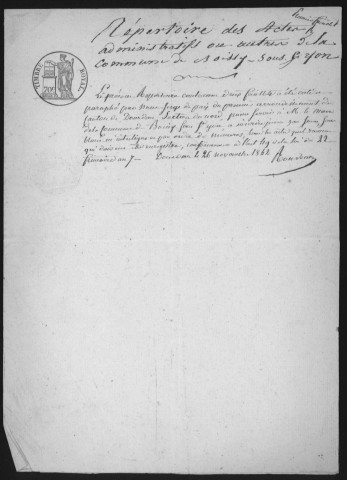 Premier feuillet
Répertoire des Actes
administratifs ou autres de la
commune de Boissy-sous-St Yon
TIMBRE ROYAL
Le présent Répertoire contenant deux feuillets a été coté et
paraphé par nous Juge de paix du
canton de Dourdan Section du nord, pour servir à M. le maire
de la commune de Boissy sous St Yon, à inscrire jour par jour, sans
blanc ni interligne et par ordre de numéros, tous les actes
qui doivent être enregistrés, conformément à l'art 49 de la loi du 22
frimaire an 7. Dourdan le 26 novembre 1862